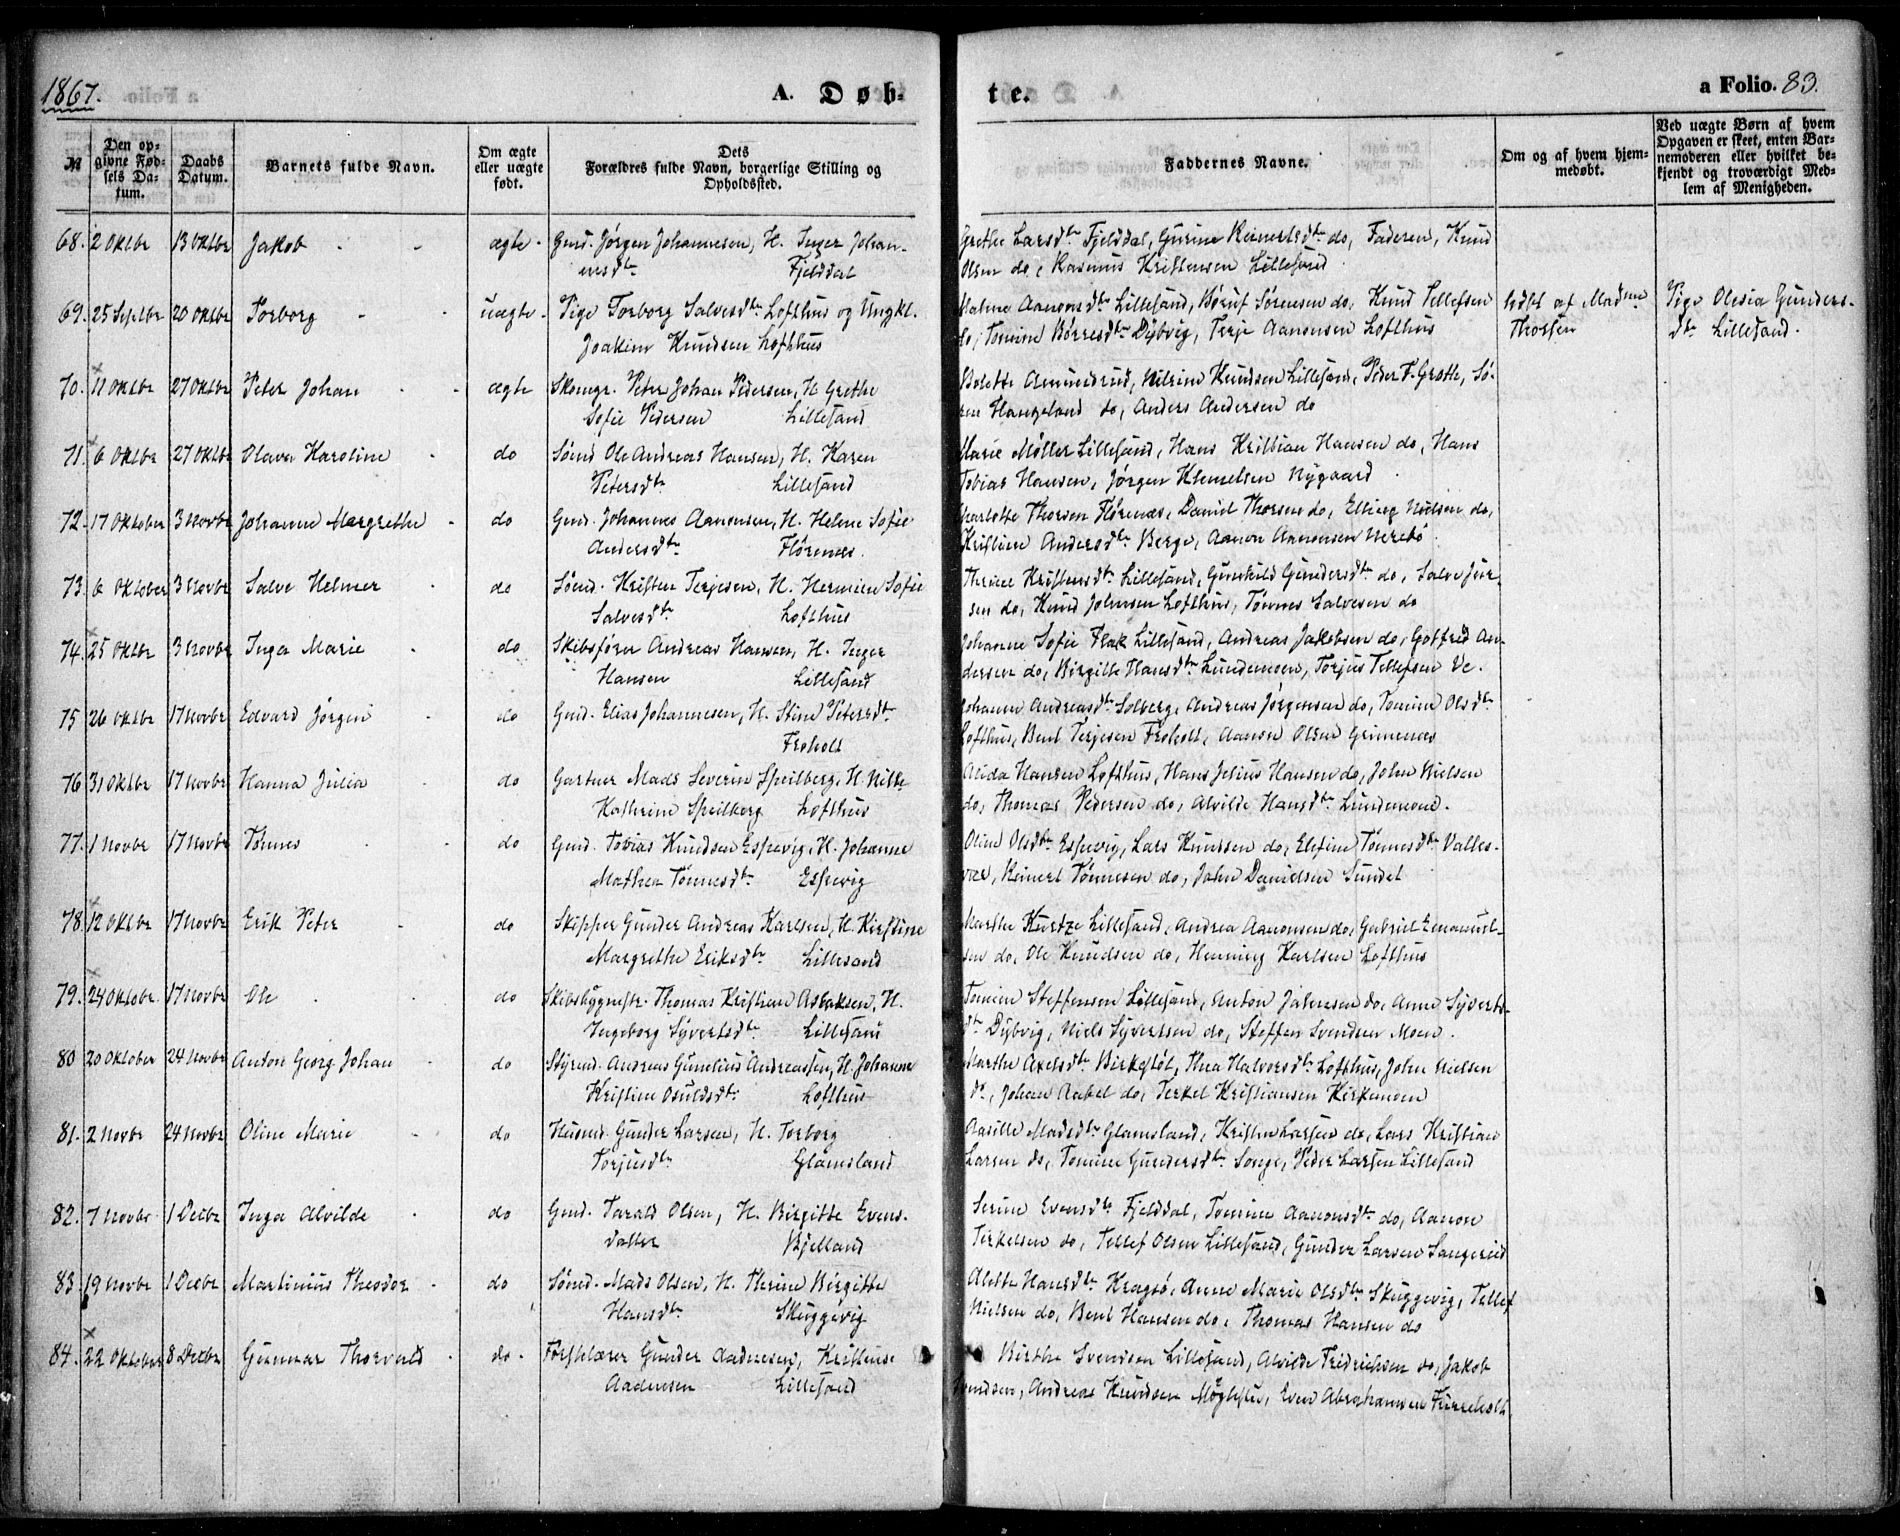 1867.
A. Døb-
te.
a Folio. 83.
№
Den op-
givne Fød-
sels Da-
tum.
Daabs
Datum.
Barnets fulde Navn.
Om ægte
eller uægte
født.
Dets
Forældres fulde Navn, borgerlige Stilling og
Opholdssted.
Faddernes Navne.
Om og af hvem hjem-
medøbt.
Ved uægte Børn af hvem
Opgaven er skeet, enten Bar-
nemoderen eller hvilket be-
kjendt og troværdigt Med-
lem af Menigheden.
68. 2 Oktbr 13 Oktbr Jakob ægte Gmd. Jørgen Johannesen, H. Inger Johan-
nesdtr Fjelddal
Grethe Larsdtr Fjelddal, Gurine Reinertsdtr do, Faderen, Knud
Olsen do, Rasmus Kristensen Lillesand
69. 25 Septbr 20 Oktbr Torborg uægte Pige Torborg Salvesdtr Lofthus og Ungkl.
Joakim Knudsen Lofthus
Aanonsdtr Lillesand, Børuf Sørensen do, Knud Tellefsen
do, Tomine Børresdtr Dybvig, Terje Aanonsen Lofthus
af Madme
Thorsen
Pige Olesia Gunders-
dtr Lillesand.
70. 11 Oktbr 27 Oktbr Peter Johan ægte Skomgr. Peter Johan Pedersen, H. Grethe
Sofie Pedersen Lillesand
Bolette Amundrud, Knudsen Lillesand, Peder F. Grothe, Sø-
ren Haugeland do, Anders Andersen do
71. 6 Oktbr 27 Oktbr Olava Karoline do Sømd Ole Andreas Hansen, H. Karen
Petersdtr Lillesand
Marie Møller Lillesand, Hans Kristian Hansen do, Hans
Tobias Hansen, Jørgen Klemetsen Nygaard
72. 17 Oktober 3 Novbr Johanne Margrethe do Gmd. Johannes Aanonsen, H. Helene Sofie
Andersdtr Flørenæs.
Charlotte Thorsen Flørenæs, Daniel Thorsen do, Elling Nielsen do,
Kristine Andersdtr Berge, Aanon Aanonsen Nerebø
73. 6 Oktober 3 Novbr Salve Helmer do Sømd. Kristen Terjesen, H. Hermine Sofie
Salvesdtr Lofthus
Therine Kristensdtr Lillesand, Gunhild Gundersdtr do, Salve Jør-
sen do, Knud Johnsen Lofthus, Tønnes Salvesen do
74. 25 Oktbr 3 Novbr Inga Marie do Skibsfører Andreas Hansen, H. Inger
Hansen Lillesand
Johanne Sofie Flak Lillesand, Andreas Jakobsen do, Gotfred An-
dersen do, Birgitte Hansdtr Lundemoen, Torjus Tellefsen Ve.
75 26 Oktbr 17 Novbr Edvard Jørgen do Gmd. Elias Johannesen, H. Stine Petersdtr
Froholt
Johanne Andreasdtr Solberg, Andreas Jørgensen do, Tomine Olsdtr
Lofthus, Bent Terjesen Froholt, Aanon Olsen Grimenæs
76 31 Oktbr 17 Novbr Hanna Julia do Gartner Mads Severin Speilberg, H. Nille
Kathrine Speilberg Lofthus
Alida Hansen Lofthus, Hans Julius Hansen do, John Nielsen
do, Thomas Pedersen do, Alvilde Hansdtr Lundemoen.
77. 1 Novbr 17 Novbr Tønnes do Gmd. Tobias Knudsen Espevig, H. Johanne
Mathea Tønnesdtr Espevig
Oline Olsdtr Espevig, Lars Knudsen do, Elefine Tønnesdtr Valles-
vær, Reinert Tønnesen do, John Danielsen Sundet
78. 12 Oktbr 17 Novbr Erik Peter do Skipper Gunder Andreas Karlsen, H. Kirstine
Margrethe Eriksdtr Lillesand
Marthe Kurtze Lillesand, Andrea Aanonsen do, Gabriel Emanuel-
sen do, Ole Knudsen do, Henning Karlsen Lofthus
79. 24 Oktober 17 Novbr Ole do Skibsbygmstr. Thomas Kristian Aslaksen, H.
Ingeborg Syvertsdtr Lillesand
Tomine Steffensen Lillesand, Anton Jakensen do, Anne Syverts-
dtr Dybvig, Niels Syvertsen do, Steffen Svendsen Moen.
80 20 Oktober 24 Novbr Anton Georg Johan do Styrmd. Andreas Gunelius Andreassen, H. Johanne
Kristine Osuldsdtr Lofthus
Marthe Axelsdtr Birkestøl, Thea Halvorsdtr Lofthus, John Nielsen
do, Johan Aabel do, Terkel Kristiansen Kirkemoen
81. 2 Novbr 24 Novbr Oline Marie do Husmd. Gunder Larsen, H. Torborg
Torjusdtr Glamsland
Aasille Madsdtr Glamsland, Kristen Larsen do, Lars Kristian
Larsen do, Tomine Gundersdtr Songe, Peder Larsen Lillesand
82. 7 Novbr 1 Decbr Inga Alvilde do Gmd. Tarald Olsen, H. Birgitte Evens-
datter Kjelland
Serine Evensdtr Fjelddal, Tomine Aanonsdtr do, Aanon
Terkelsen do, Tellef Olsen Lillesand, Gunder Larsen Sangereid
83 19 Novbr 1 Decbr Martinius Theodor do Sømd. Mads Olsen, H. Therine Birgitte
Hansdtr Skuggevig
Alette Hansdtr Kragsø, Anne Marie Olsdtr Skuggevig, Tellef
Nielsen do, Bent Hansen do, Thomas Hansen do
84. 22 Oktober 8 Decbr Gunnar Thorvald do Gunder Aadnesen, Kristense
Aadnesen Lillesand
Birthe Svendsen Lillesand, Alvilde Fredrichsen do, Jakob
Svendsen, Andreas Knudsen Møglestu, Even Abrahamsen